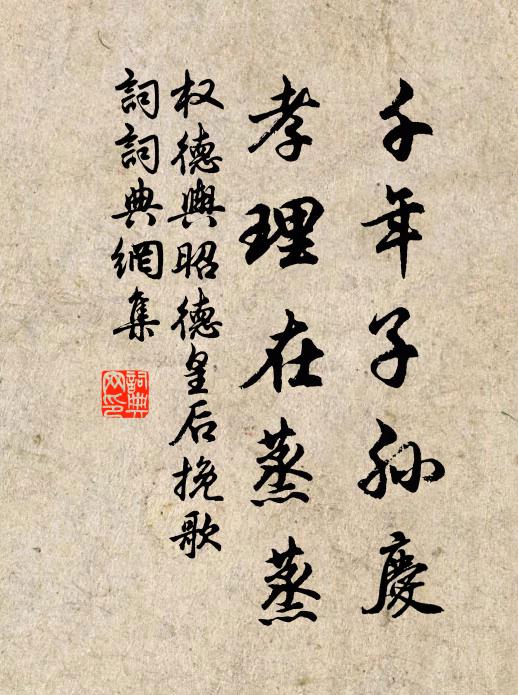 千年子孙慶
孝理在蒸蒸
权德輿昭德皇后挽歌
詞詞典網集
詞典网印